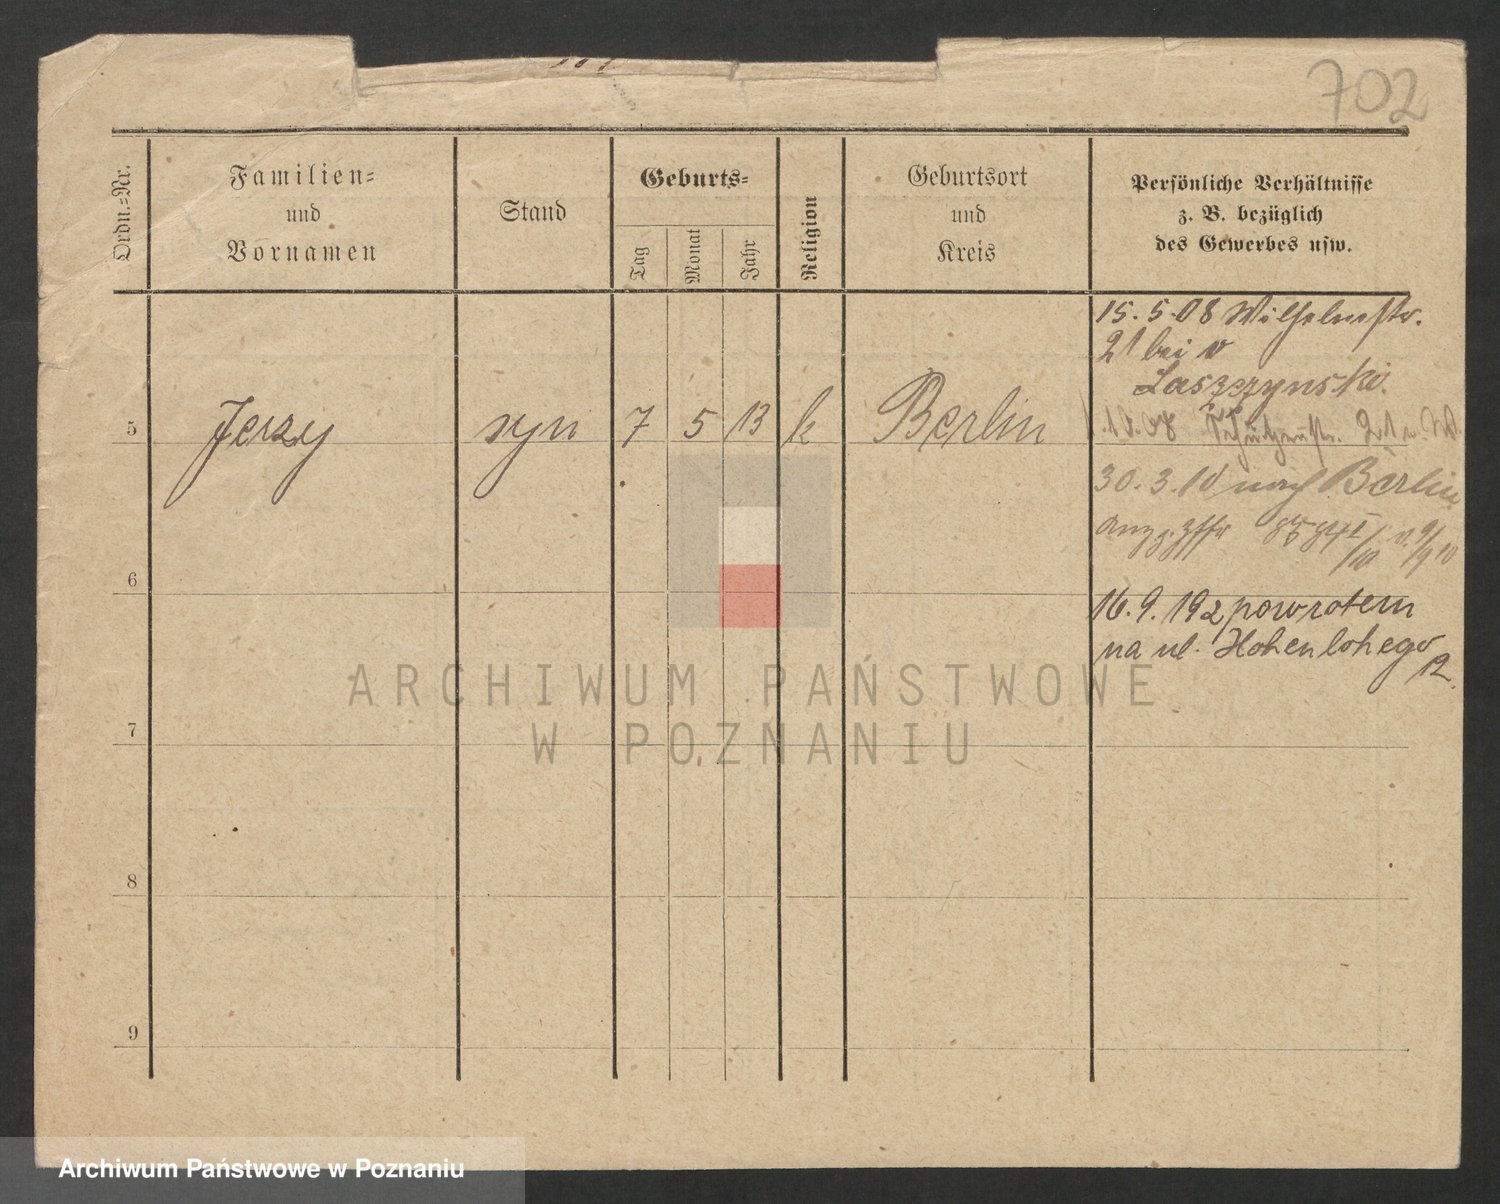 702
Ordn.=Nr.
Familien=
und
Vornamen
Stand
Geburts=
Tag
Monat
Jahr
Religion
Geburtsort
und
Kreis
Persönliche Verhältnisse
z. B. bezüglich
des Gewerbes usw.
15. 5. 08 Wilhelmstr.
21 bei v
Laszczynski.
5 Jerzy syn 7 5 13 k Berlin
1.10.08 Schützenstr. 21
30. 3. 10 nach Berlin
6
16. 9. 192 powrotem
na ul. Hohenlohego
12.
7
8
9
ARCHIWUM PAŃSTWOWE
W POZNANIU
Archiwum Państwowe w Poznaniu